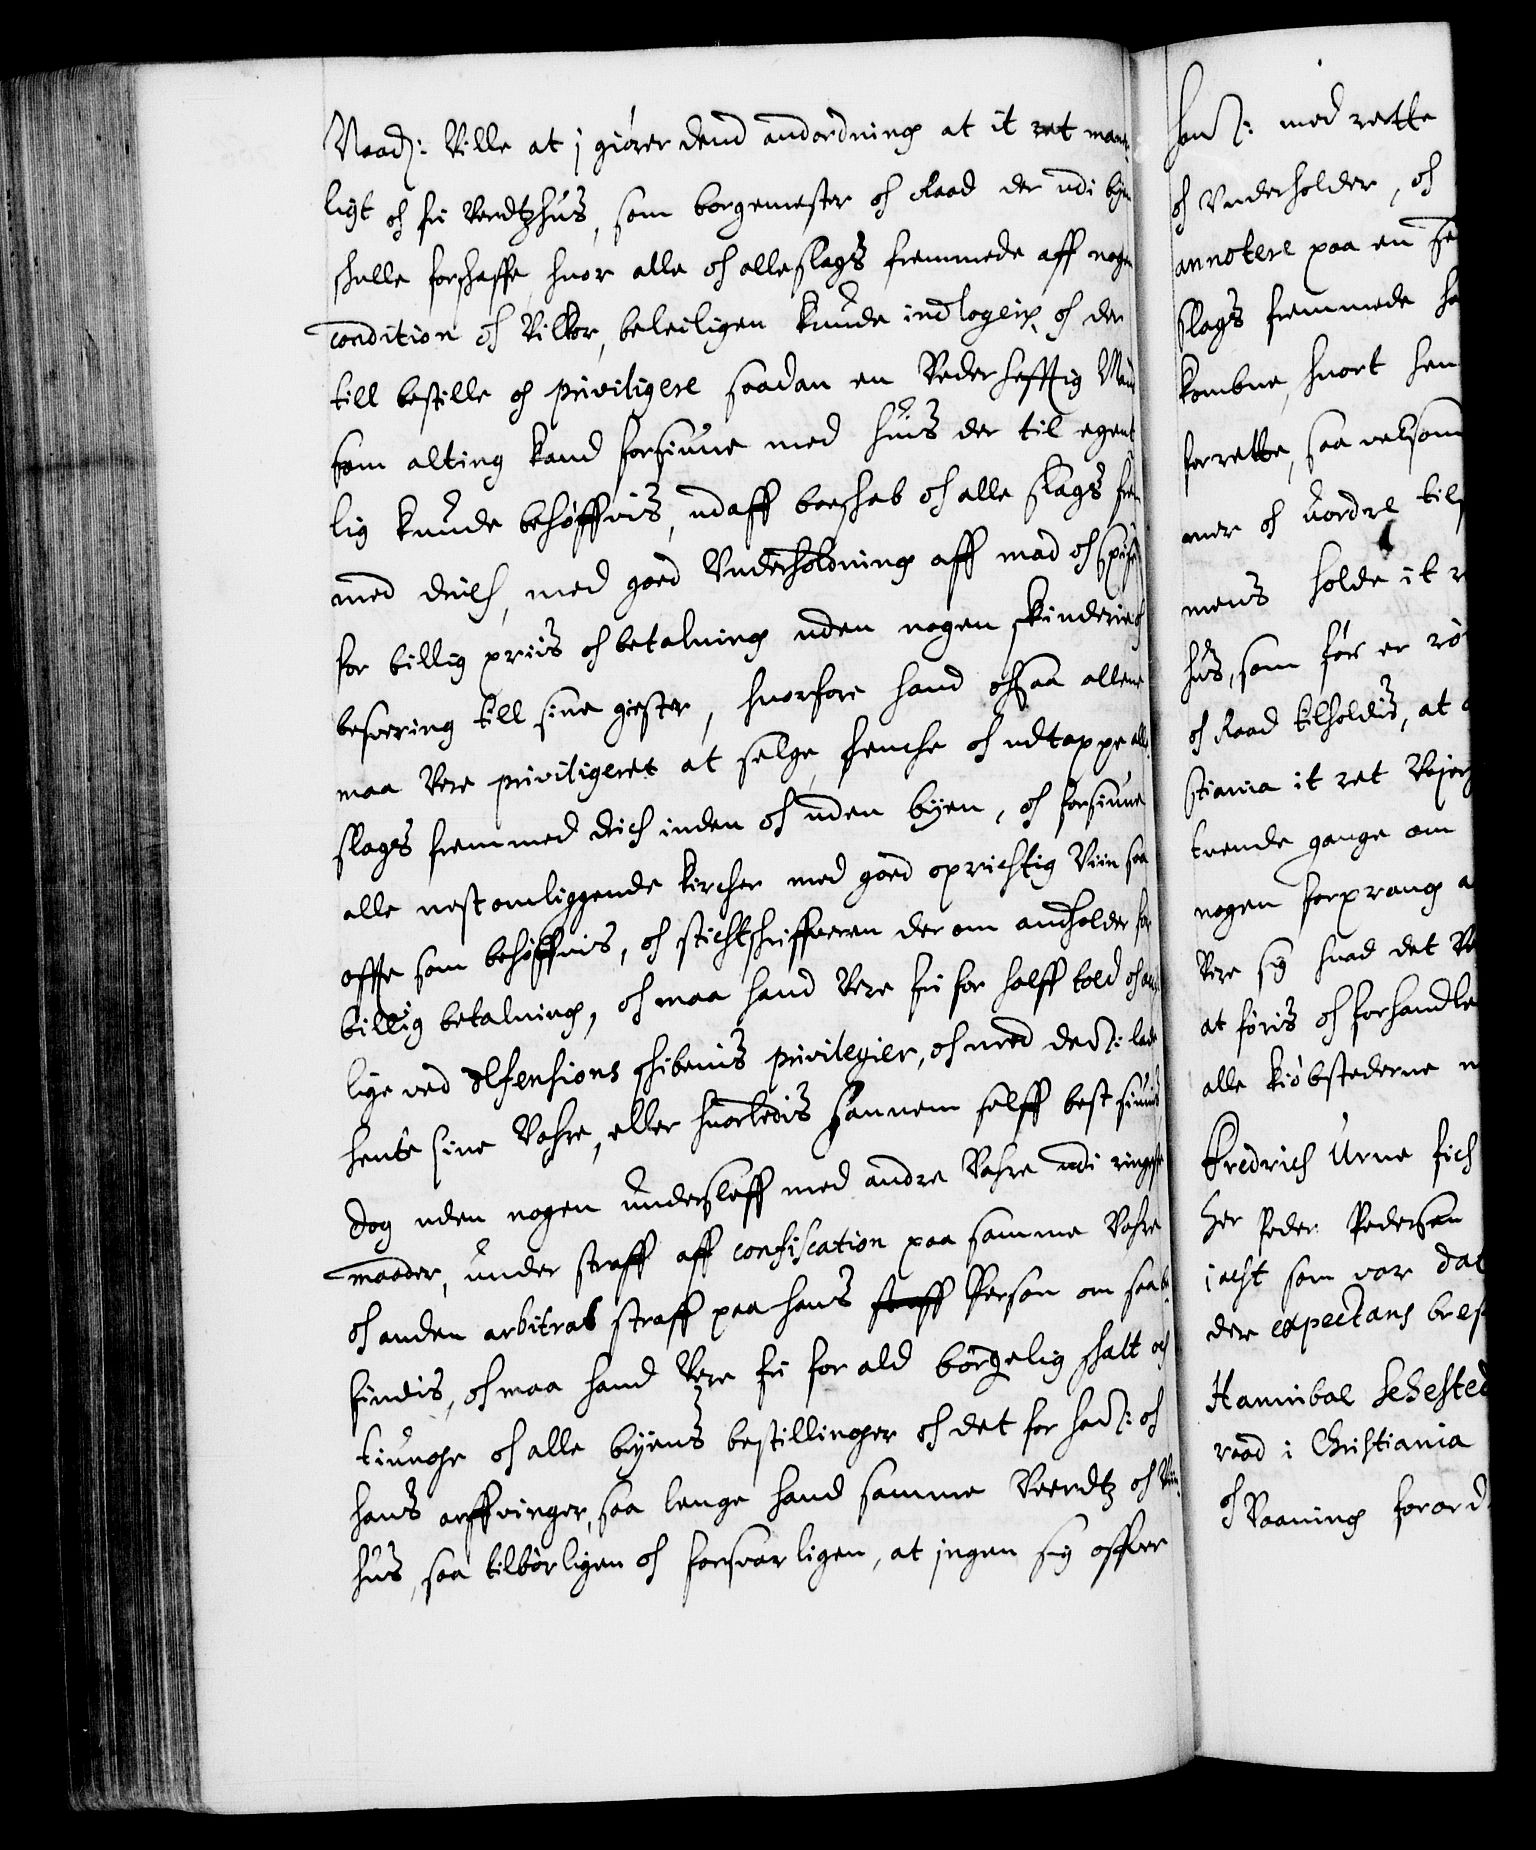 Naad: Ville at j giörer dend andordning at it ret mane-
ligt och fri Verdtzhus, som borgemester och Raad der udi byen
skulle forskaffe, huor alle och alleslags fremmede aff nogen
condition och Vilkor, beleiligen kunde indlogeris, och der
till bestille och privilegere saadan en Vederhefftig Mand
som alting kand forsiune med huis der til egent
lig kunde behöffvis, udaff boeskab och alle slags frem
med drick, med goed Underholdning aff mad och spise,
for billig priis och betalning uden nogen skinderie och
besvering till sine giester, huorfore hand ochsaa allene
maa Vere privilegeret at selge, skencke och udtappe alle
slags fremmed drick inden och uden byen, och forsiune
alle nest omliggende Kircker med goed oprichtig Viin saa
offte som behöffvis, och stichtskriffveren der om andholder for
billig betalning, och maa hand Vere fri for halff told
lige ved defensions skibenis privilegier, och med dend: lade
hente sine Vahre, eller huorledis hannem selff best siunis
dog uden nogen undersleff med andre Vahre udi ringeste
maader, under straff aff confiscation paa samme Vahre
och anden arbitral straff paa hans straff Person om saa be-
findis, och maa hand Vere fri for ald borgelig skatt och
tiunge och alle byens bestillinger och det for hand: och
hans arffvinger, saa lenge hand samme Veerdtz och Viin
hus, saa tilbörligen och forsvarligen, at ingen sig offver
hand: med rette
och Underholder, och
annotere paa en
slags fremmede
kombne, huort hen
forrette, saa velsom
mer och vordre
mens holde it
hus, som för er
och Raad tilholdis, at
stiania it ret
trende gange om
nogen forprang
Vere sig huad det
at föris och forhandle
alle kiöbstederne
Fredrich Urne fich
Her Peder Pedersen
iacht som var
der expectans
Hannibal Sehested
raad i Christiania
och Vaaning forord